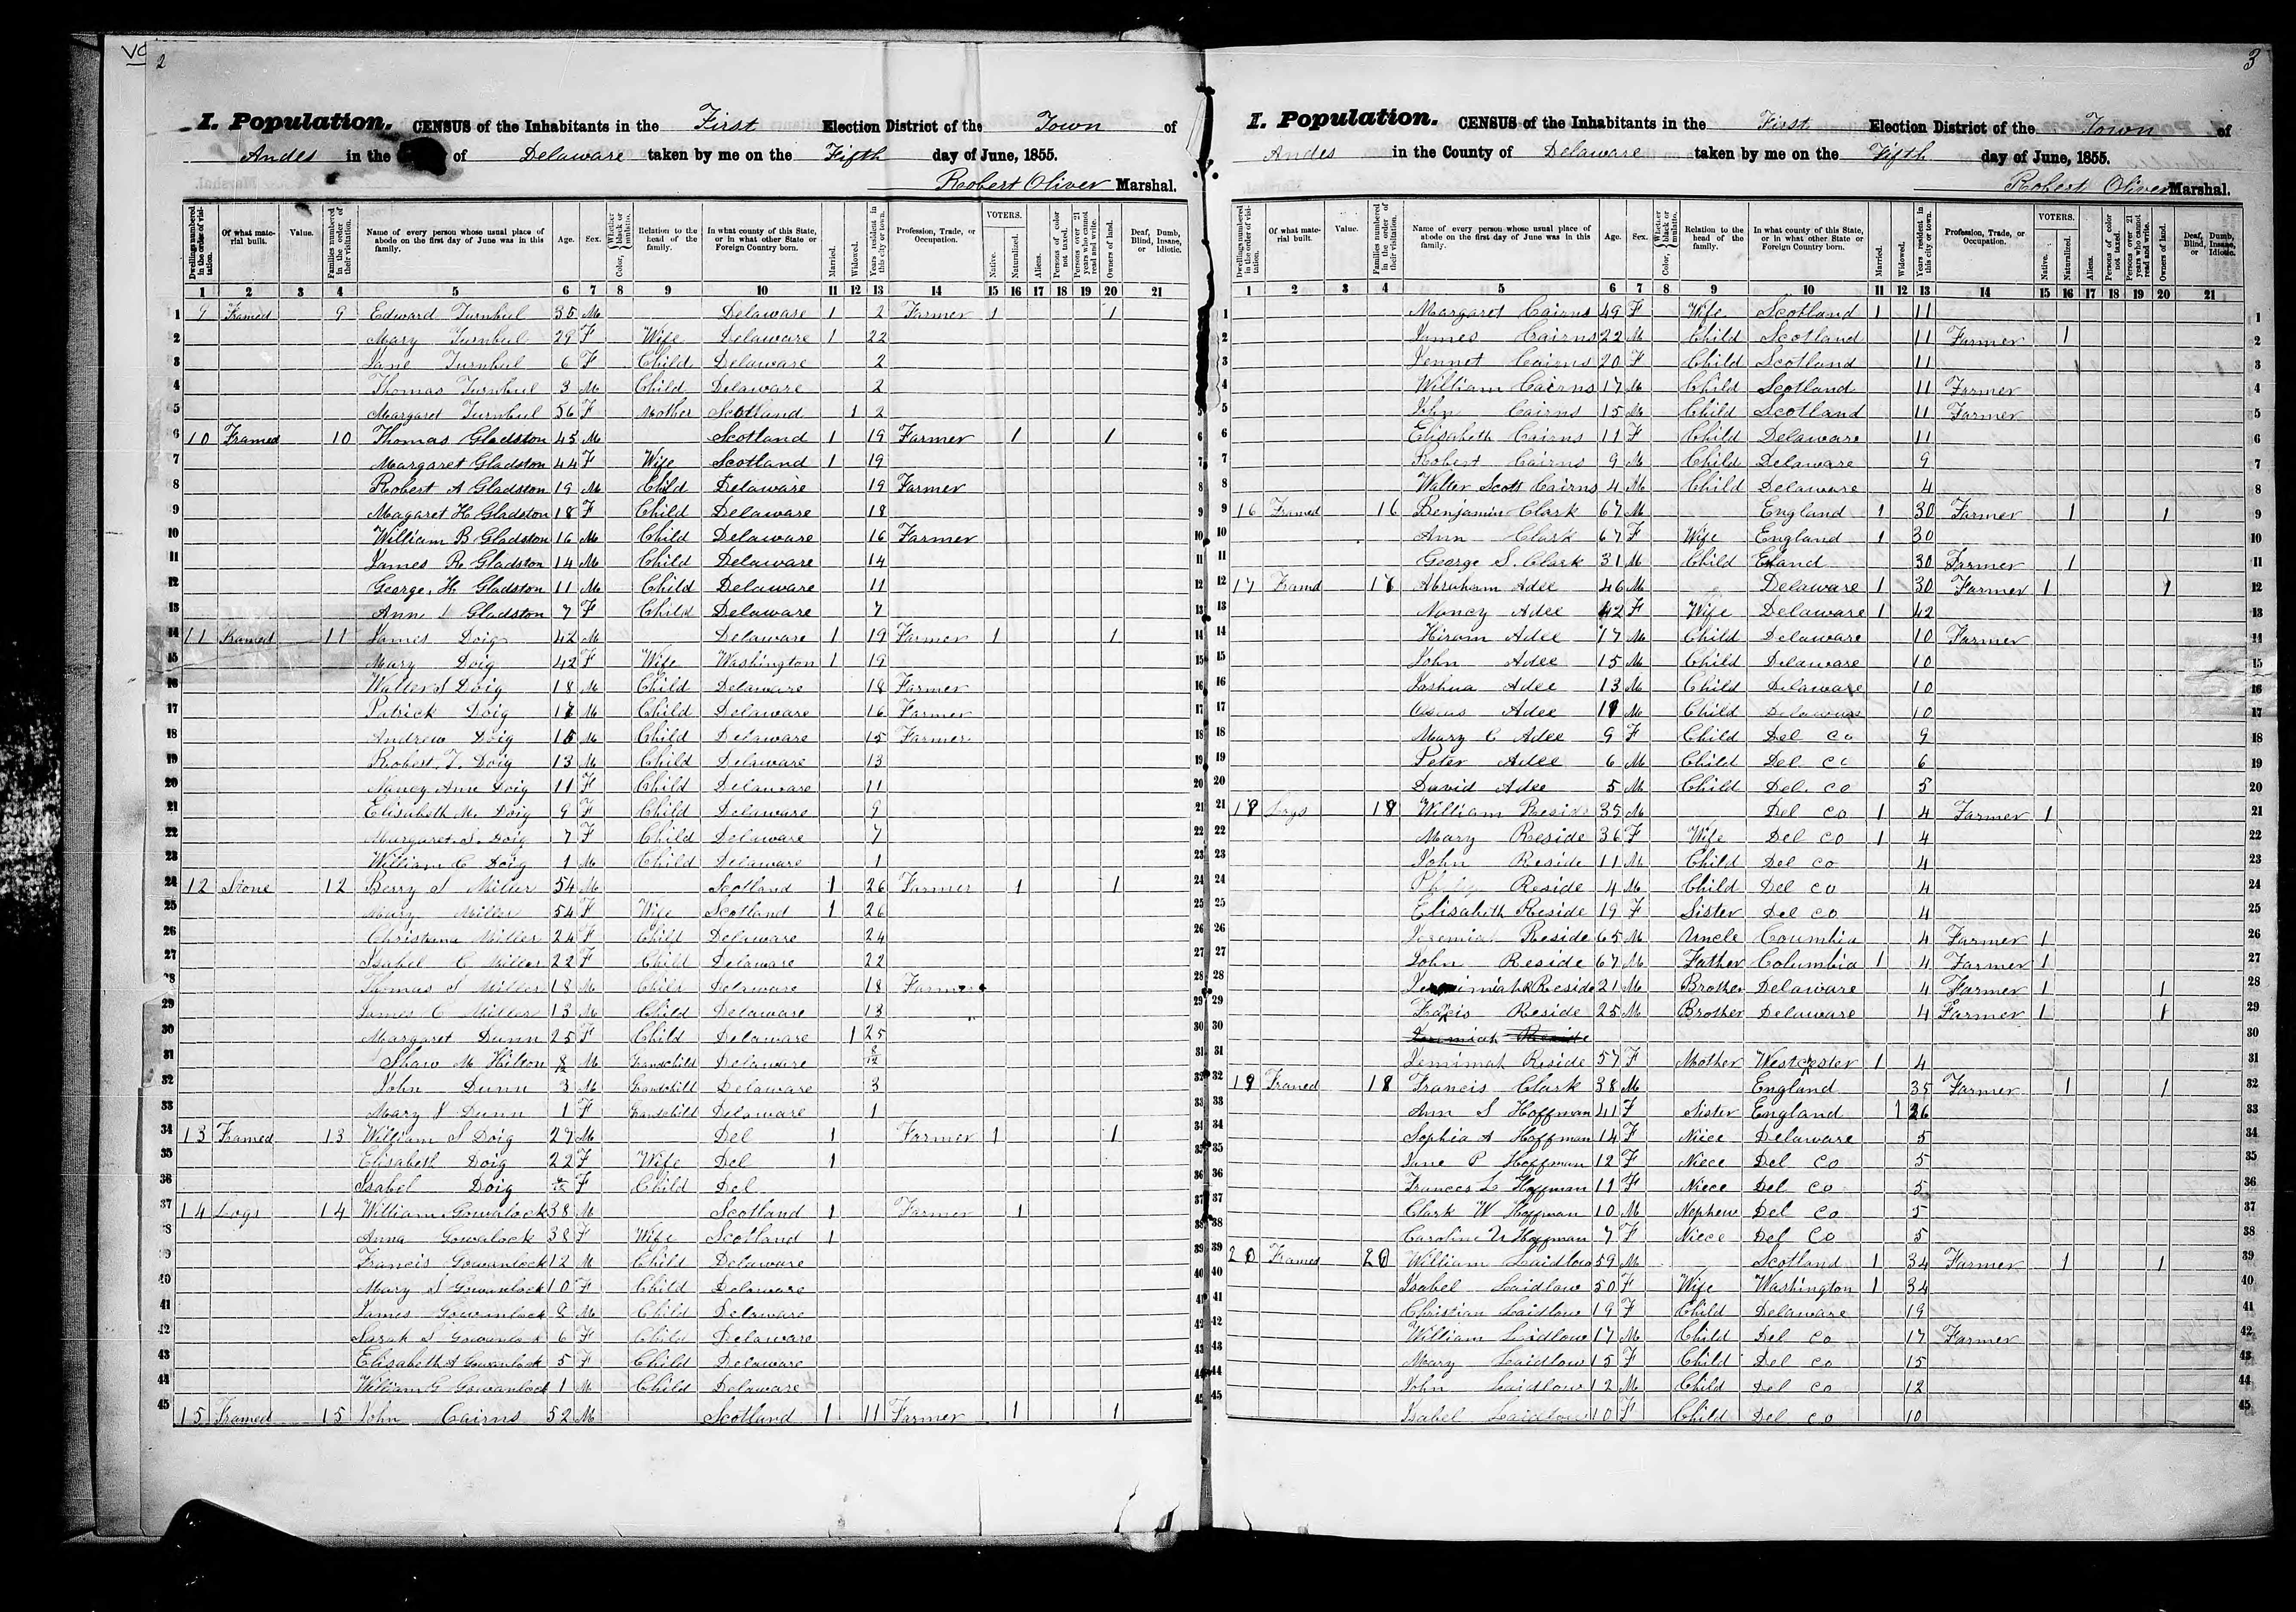 VC
2
I. Population. CENSUS of the Inhabitants in the First Election District of the Town of
Andes in the of Delaware taken by me on the Fifth day of June, 1855.
Robert Oliver Marshal.
Dwellings numbered in the order of visitation. Of what material built. Value. Families numbered in the order of their visitation. Name of every person whose usual place of abode on the first day of June was in this family. Age. Sex. Color, Whether black or mulatto. Relation to the head of the family. In what county of this State, or in what other State or Foreign Country born. Married. Widowed. Years resident in this city or town. Profession, Trade, or Occupation. VOTERS. Native. Naturalized. Aliens. Persons of color not taxed. Persons over 21 years who cannot read and write. Owners of land. Deaf, Dumb, Blind, Insane, or Idiotic.
1 2 3 4 5 6 7 8 9 10 11 12 13 14 15 16 17 18 19 20 21
1 9 Framed 9 Edward Turnbul 35 M Delaware 1 2 Farmer 1 1
2 Mary Turnbul 29 F Wife Delaware 1 22
3 Jane Turnbul 6 F Child Delaware 2
4 Thomas Turnbul 3 M Child Delaware 2
5 Margaret Turnbul 56 F Mother Scotland 1 2
6 10 Framed 10 Thomas Gladston 45 M Scotland 1 19 Farmer 1 1
7 Margaret Gladston 44 F Wife Scotland 1 19
8 Robert A Gladston 19 M Child Delaware 19 Farmer
9 Magaret H Gladston 18 F Child Delaware 18
10 William B Gladston 16 M Child Delaware 16 Farmer
11 James R Gladston 14 M Child Delaware 14
12 George H Gladston 11 M Child Delaware 11
13 Ann Gladston 7 F Child Delaware 7
14 11 Framed 11 James Doig 42 M Delaware 1 19 Farmer 1 1
15 Mary Doig 42 F Wife Washington 1 19
16 Walter S Doig 18 M Child Delaware 18 Farmer
17 Patrick Doig 17 M Child Delaware 16 Farmer
18 Andrew Doig 15 M Child Delaware 15 Farmer
19 Robert T. Doig 13 M Child Delaware 13
20 Nancy Ann Doig 11 F Child Delaware 11
21 Elisabeth M. Doig 9 F Child Delaware 9
22 Margaret S. Doig 7 F Child Delaware 7
23 William C Doig 1 M Child Delaware 1
24 12 Stone 12 Berry S Miller 54 M Scotland 1 26 Farmer 1 1
25 Mary Miller 54 F Wife Scotland 1 26
26 Christena Miller 24 F Child Delaware 24
27 Isabel C Miller 22 F Child Delaware 22
28 Thomas S Miller 18 M Child Delaware 18 Farmer
29 James C Miller 13 M Child Delaware 13
30 Margaret Dunn 25 F Child Delaware 1 25
31 Shaw M Hilton 8/12 M Grandchild Delaware 8/12
32 John Dunn 3 M Grandchild Delaware 3
33 Mary J Dunn 1 F Grandchild Delaware 1
34 13 Framed 13 William S Doig 27 M Del 1 Farmer 1 1
35 Elisabeth Doig 22 F Wife Del 1
36 Isabel Doig F Child Del
37 14 Logs 14 William Gowalock 38 M Scotland 1 Farmer 1
38 Anna Gowalock 38 F Wife Scotland 1
39 Francis Gowanlock 12 M Child Delaware
40 Mary S Gowanlock 10 F Child Delaware
41 James Gowanlock 8 M Child Delaware
42 Sarah S Gowanlock 6 F Child Delaware
43 Elisabeth A Gowanlock 5 F Child Delaware
44 William G Gowanlock 1 M Child Delaware
45 15 Framed 15 John Cairns 52 M Scotland 1 11 Farmer 1 1
3
I. Population. CENSUS of the Inhabitants in the First Election District of the Town of
Andes in the County of Delaware taken by me on the Fifth day of June, 1855.
Robert Oliver Marshal.
Dwellings numbered in the order of visitation. Of what material built. Value. Families numbered in the order of their visitation. Name of every person whose usual place of abode on the first day of June was in this family. Age. Sex. Color, Whether black or mulatto. Relation to the head of the family. In what county of this State, or in what other State or Foreign Country born. Married. Widowed. Years resident in this city or town. Profession, Trade, or Occupation. VOTERS. Native. Naturalized. Aliens. Persons of color not taxed. Persons over 21 years who cannot read and write. Owners of land. Deaf, Dumb, Blind, Insane, or Idiotic.
1 2 3 4 5 6 7 8 9 10 11 12 13 14 15 16 17 18 19 20 21
1 Margaret Cairns 49 F Wife Scotland 1 11
2 James Cairns 22 M Child Scotland 11 Farmer 1
3 Jennet Cairns 20 F Child Scotland 11
4 William Cairns 17 M Child Scotland 11 Farmer
5 John Cairns 15 M Child Scotland 11 Farmer
6 Elisabeth Cairns 11 F Child Delaware 11
7 Robert Cairns 9 M Child Delaware 9
8 Walter Scott Cairns 4 M Child Delaware 4
9 16 Framed 16 Benjamin Clark 67 M England 1 30 Farmer 1 1
10 Ann Clark 67 F Wife England 1 30
11 George S. Clark 31 M Child Eland 30 Farmer 1
12 17 Framd 17 Abraham Adee 46 M Delaware 1 30 Farmer 1 1
13 Nancy Adee 42 F Wife Delaware 1 42
14 Hiram Adee 17 M Child Delaware 10 Farmer
15 John Adee 15 M Child Delaware 10
16 Joshua Adee 13 M Child Delaware 10
17 Adee 11 M Child Delaware 10
18 Mary C Adee 9 F Child Del Co 9
19 Peter Adee 6 M Child Del Co 6
20 David Adee 5 M Child Del. Co 5
21 18 Logs 18 William Reside 35 M Del Co 1 4 Farmer 1
22 Mary Reside 36 F Wife Del Co 1 4
23 John Reside 11 M Child Del Co 4
24 Reside 4 M Child Del Co 4
25 Elisabeth Reside 19 F Sister Del Co 4
26 Jeremiah Reside 65 M Uncle Coumbia 4 Farmer 1
27 John Reside 67 M Father Columbia 1 4 Farmer 1
28 Reside 21 M Brother Delaware 4 Farmer 1 1
29 Reside 25 M Brother Delaware 4 Farmer 1 1
30 Jeremiah Reside
31 Jemimah Reside 57 F Mother Westchester 1 4
32 19 Framed 18 Francis Clark 38 M England 35 Farmer 1 1
33 Ann S Hoffman 41 F Sister England 1 26
34 Sophia A Hoffman 14 F Niece Delaware 5
35 Jane P Hoffman 12 F Niece Del Co 5
36 Frances L Hoffman 11 F Niece Del Co 5
37 Clark W Hoffman 10 M Nephew Del Co 5
38 Caroline Hoffman 7 F Niece Del Co 5
39 20 Framed 20 William Laidlow 59 M Scotland 1 34 Farmer 1 1
40 Isabel Laidlow 50 F Wife Washington 1 34
41 Christian Laidlow 19 F Child Delaware 19
42 William Laidlow 17 M Child Del Co 17 Farmer
43 Mary Laidlow 15 F Child Del Co 15
44 John Laidlow 12 M Child Del Co 12
45 Isabel Laidlow 10 F Child Del Co 10